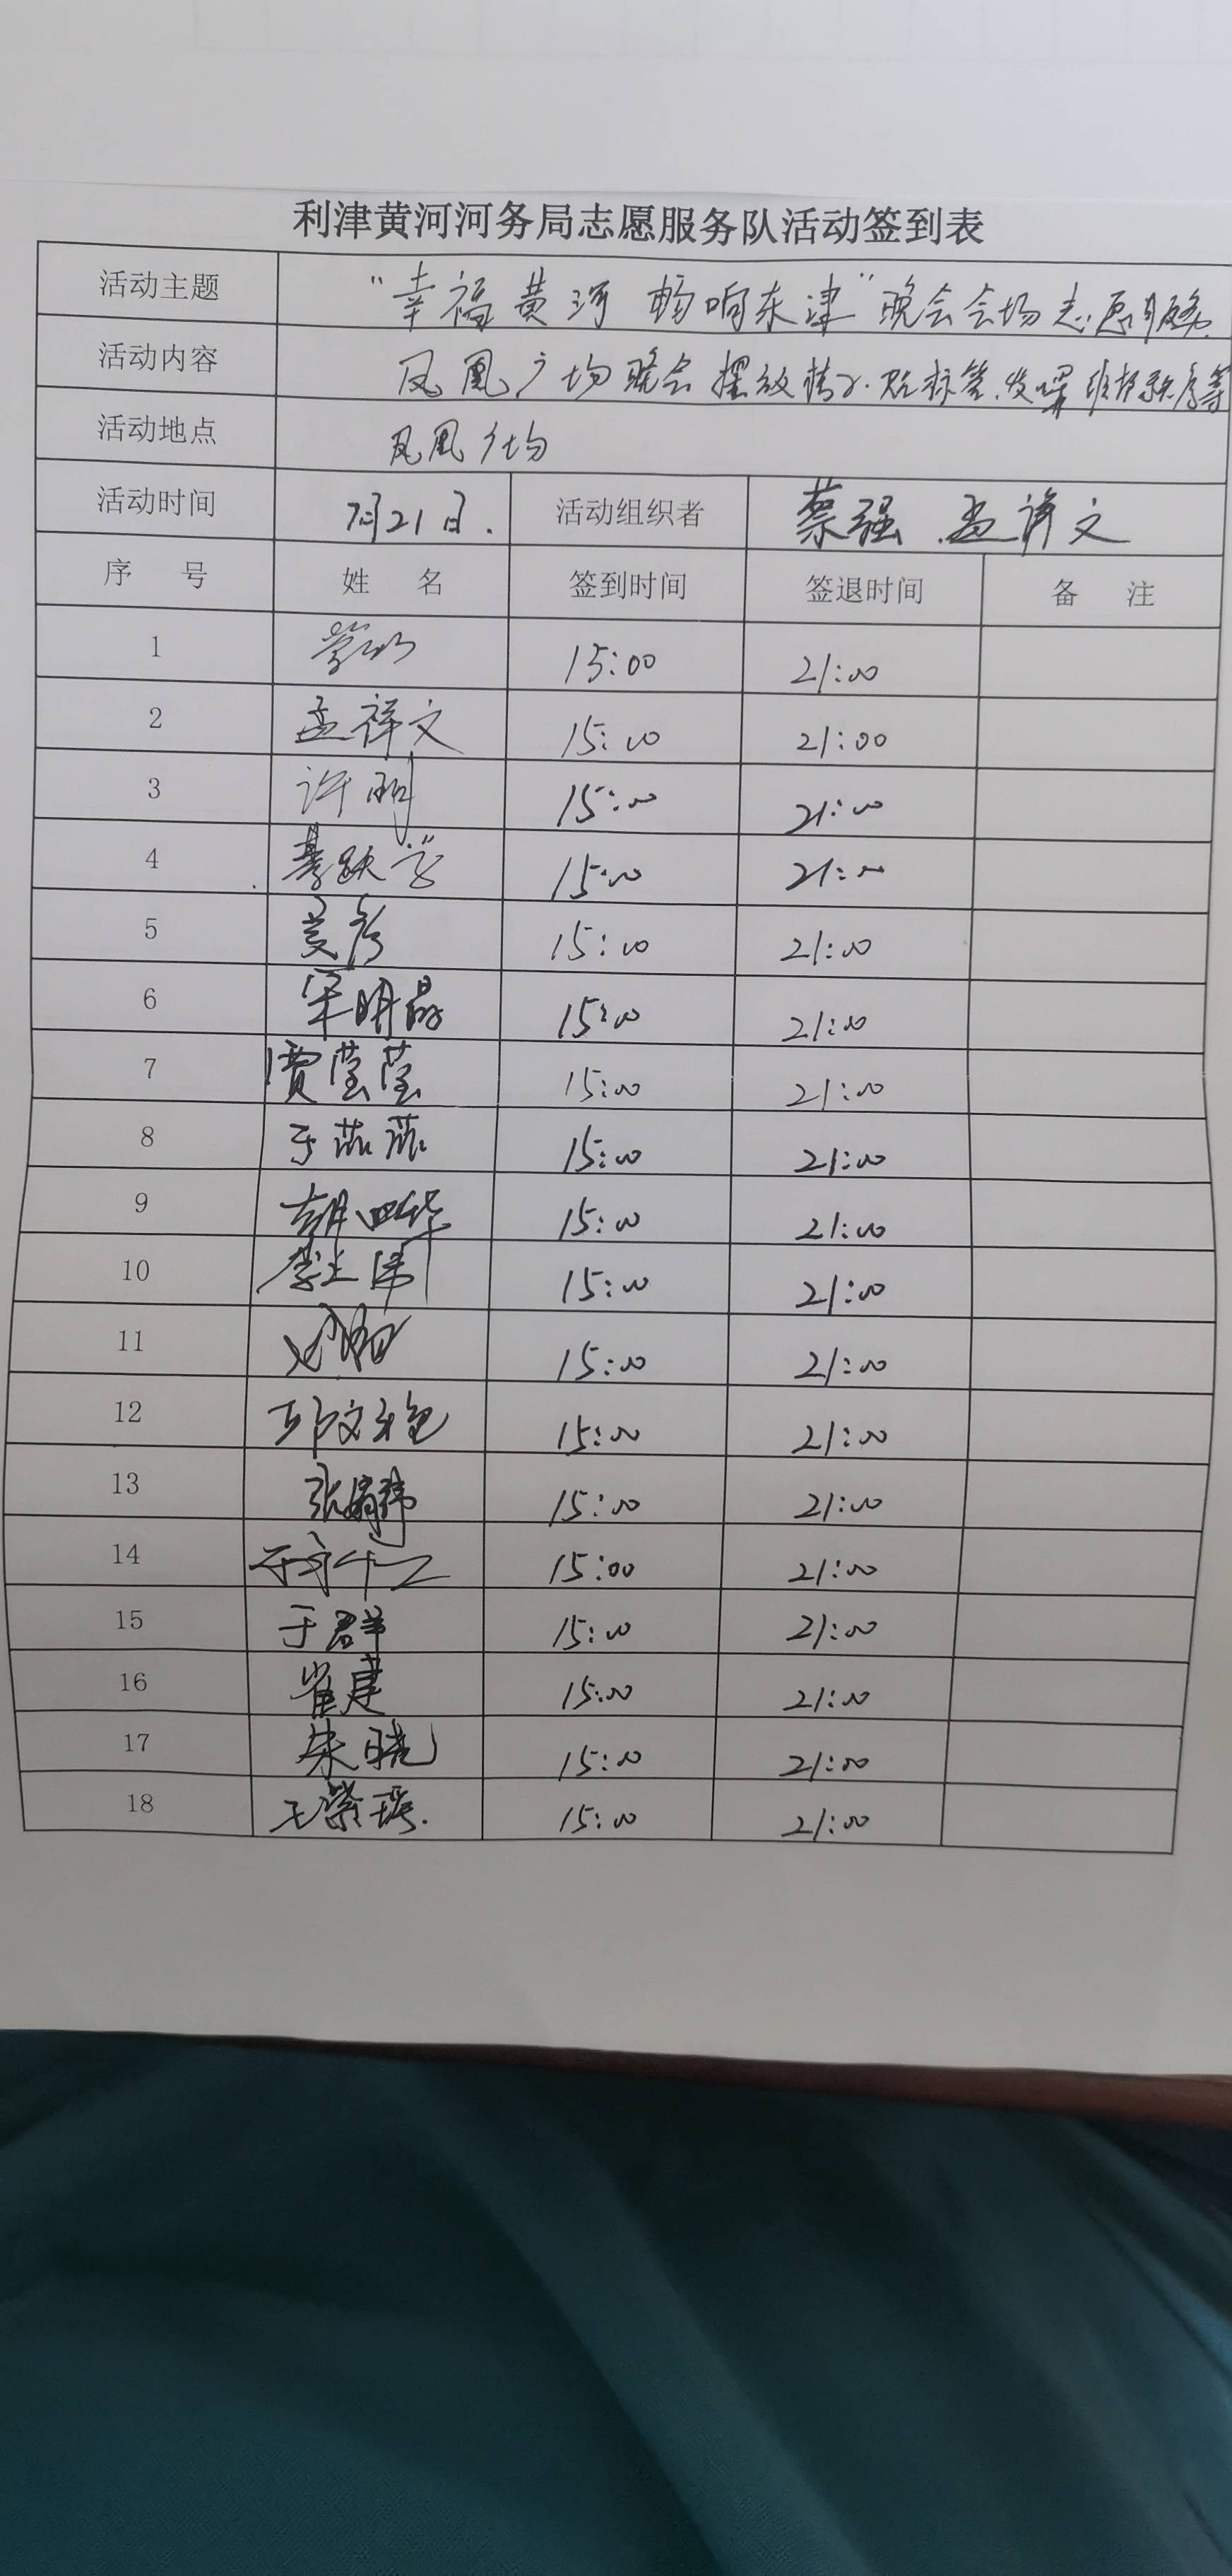 利津黄河河务局志愿服务队活动签到表
活动主题 “幸福黄河 畅响东津”晚会会场志愿服务
活动内容 凤凰广场晚会摆放椅子.贴标签.发 维护秩序等
活动地点 凤凰广场
活动时间 7月21日. 活动组织者 蔡强 孟祥文
序 号 姓 名 签到时间 签退时间 备 注
1 15:00 21:00
2 孟祥文 15:00 21:00
3 许明 15:00 21:00
4 15:00 21:00
5 15:00 21:00
6 明晶 15:00 21:00
7 贾莹莹 15:00 21:00
8 于 15:00 21:00
9 胡 华 15:00 21:00
10 李 伟 15:00 21:00
11 15:00 21:00
12 文 15:00 21:00
13 张 15:00 21:00
14 15:00 21:00
15 于群 15:00 21:00
16 崔建 15:00 21:00
17 朱晓 15:00 21:00
18 王紫瑶. 15:00 21:00